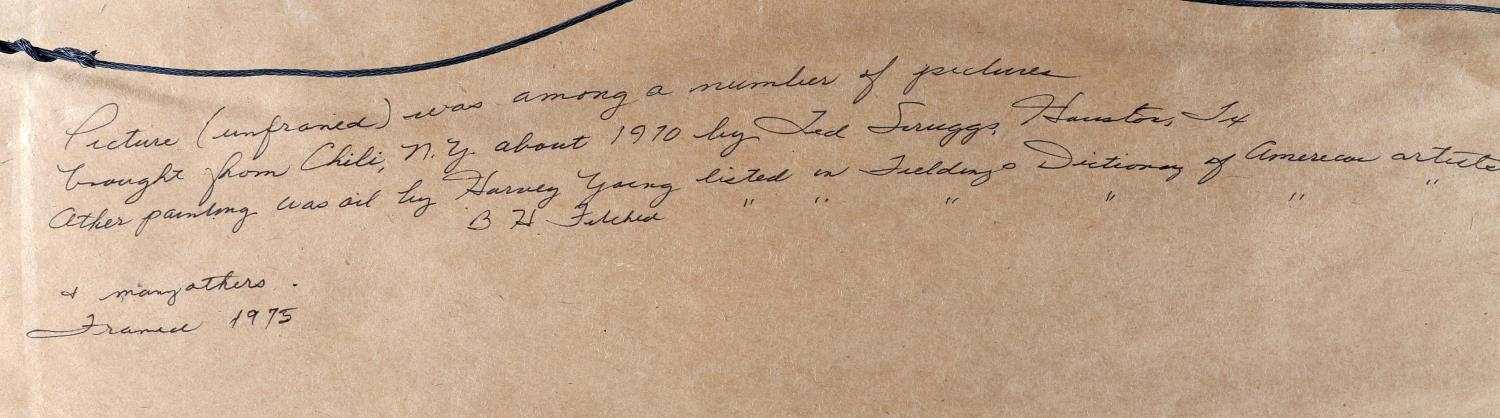 Picture (unframed) was among a number of pictures
brought from Chili, N.Y. about 1970 by Ted Scruggs, Houston, Tx
Other painting was oil by Harvey Young listed in Fieldings Dictionary of American artists
B H. " " " " " "
& many others.
Framed 1975